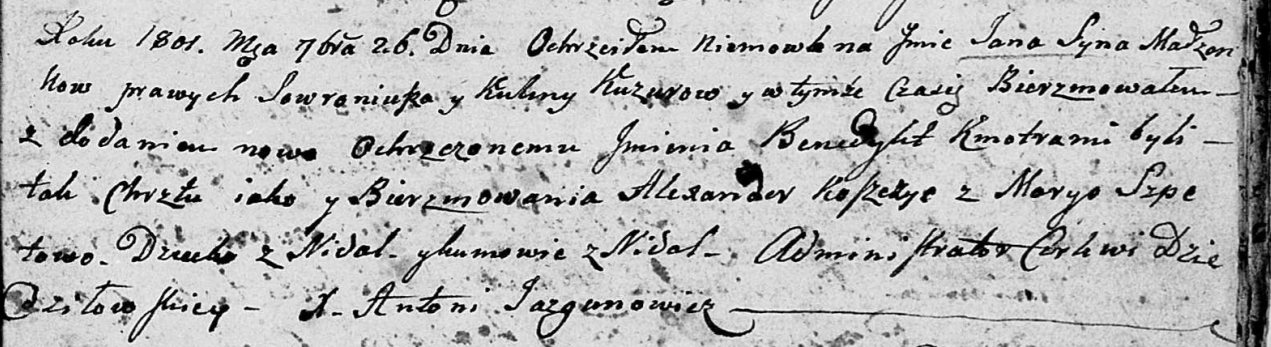 Roku 1801. Mca 7bra 26. Dnia Ochrzciłem Niemowle na Jmie Jana Syna Małżon
kow prawych Sowroniusza y Kuliny Kuzurow y w tymże Czasie Bierzmowałem –
z dodaniem nowo Ochrzczonemu Jmienia Benedykt Kmotrami byli –
tak Chrztu iako y Bierzmowania Alexander Koszczyc z Maryo Szpe
towo. Dziecko z Nidal. y kumowie z Nidal – Administrator Cerkwi Dzie
Dziłowskiey – X. Antoni Jazgunowicz